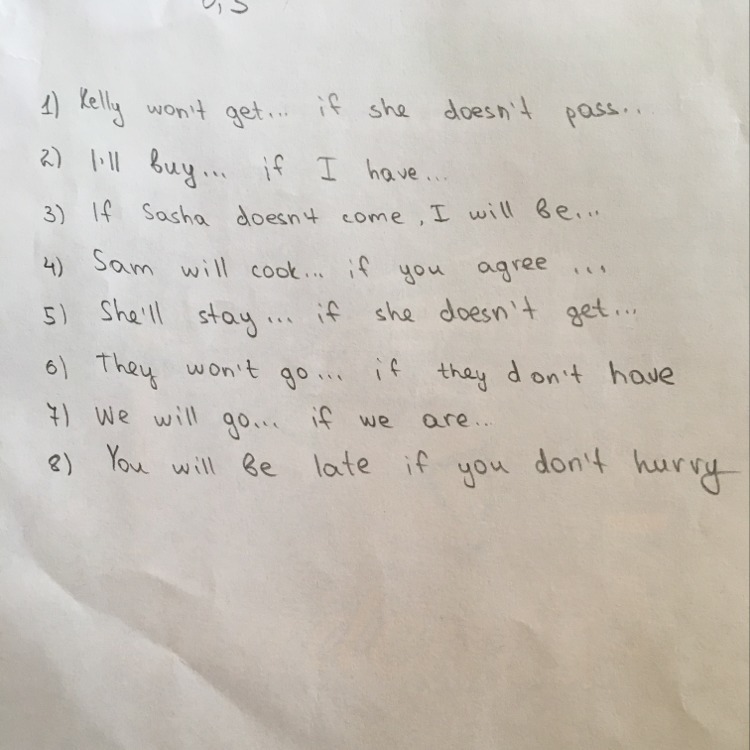 1) Kelly won't get... if she doesn't pass..
2) I'll buy... if I have...
3) If Sasha doesn't come, I will be...
4) Sam will cook... if you agree ...
5) She'll stay... if she doesn't get...
6) They won't go... if they don't have
7) We will go... if we are...
8) You will be late if you don't hurry